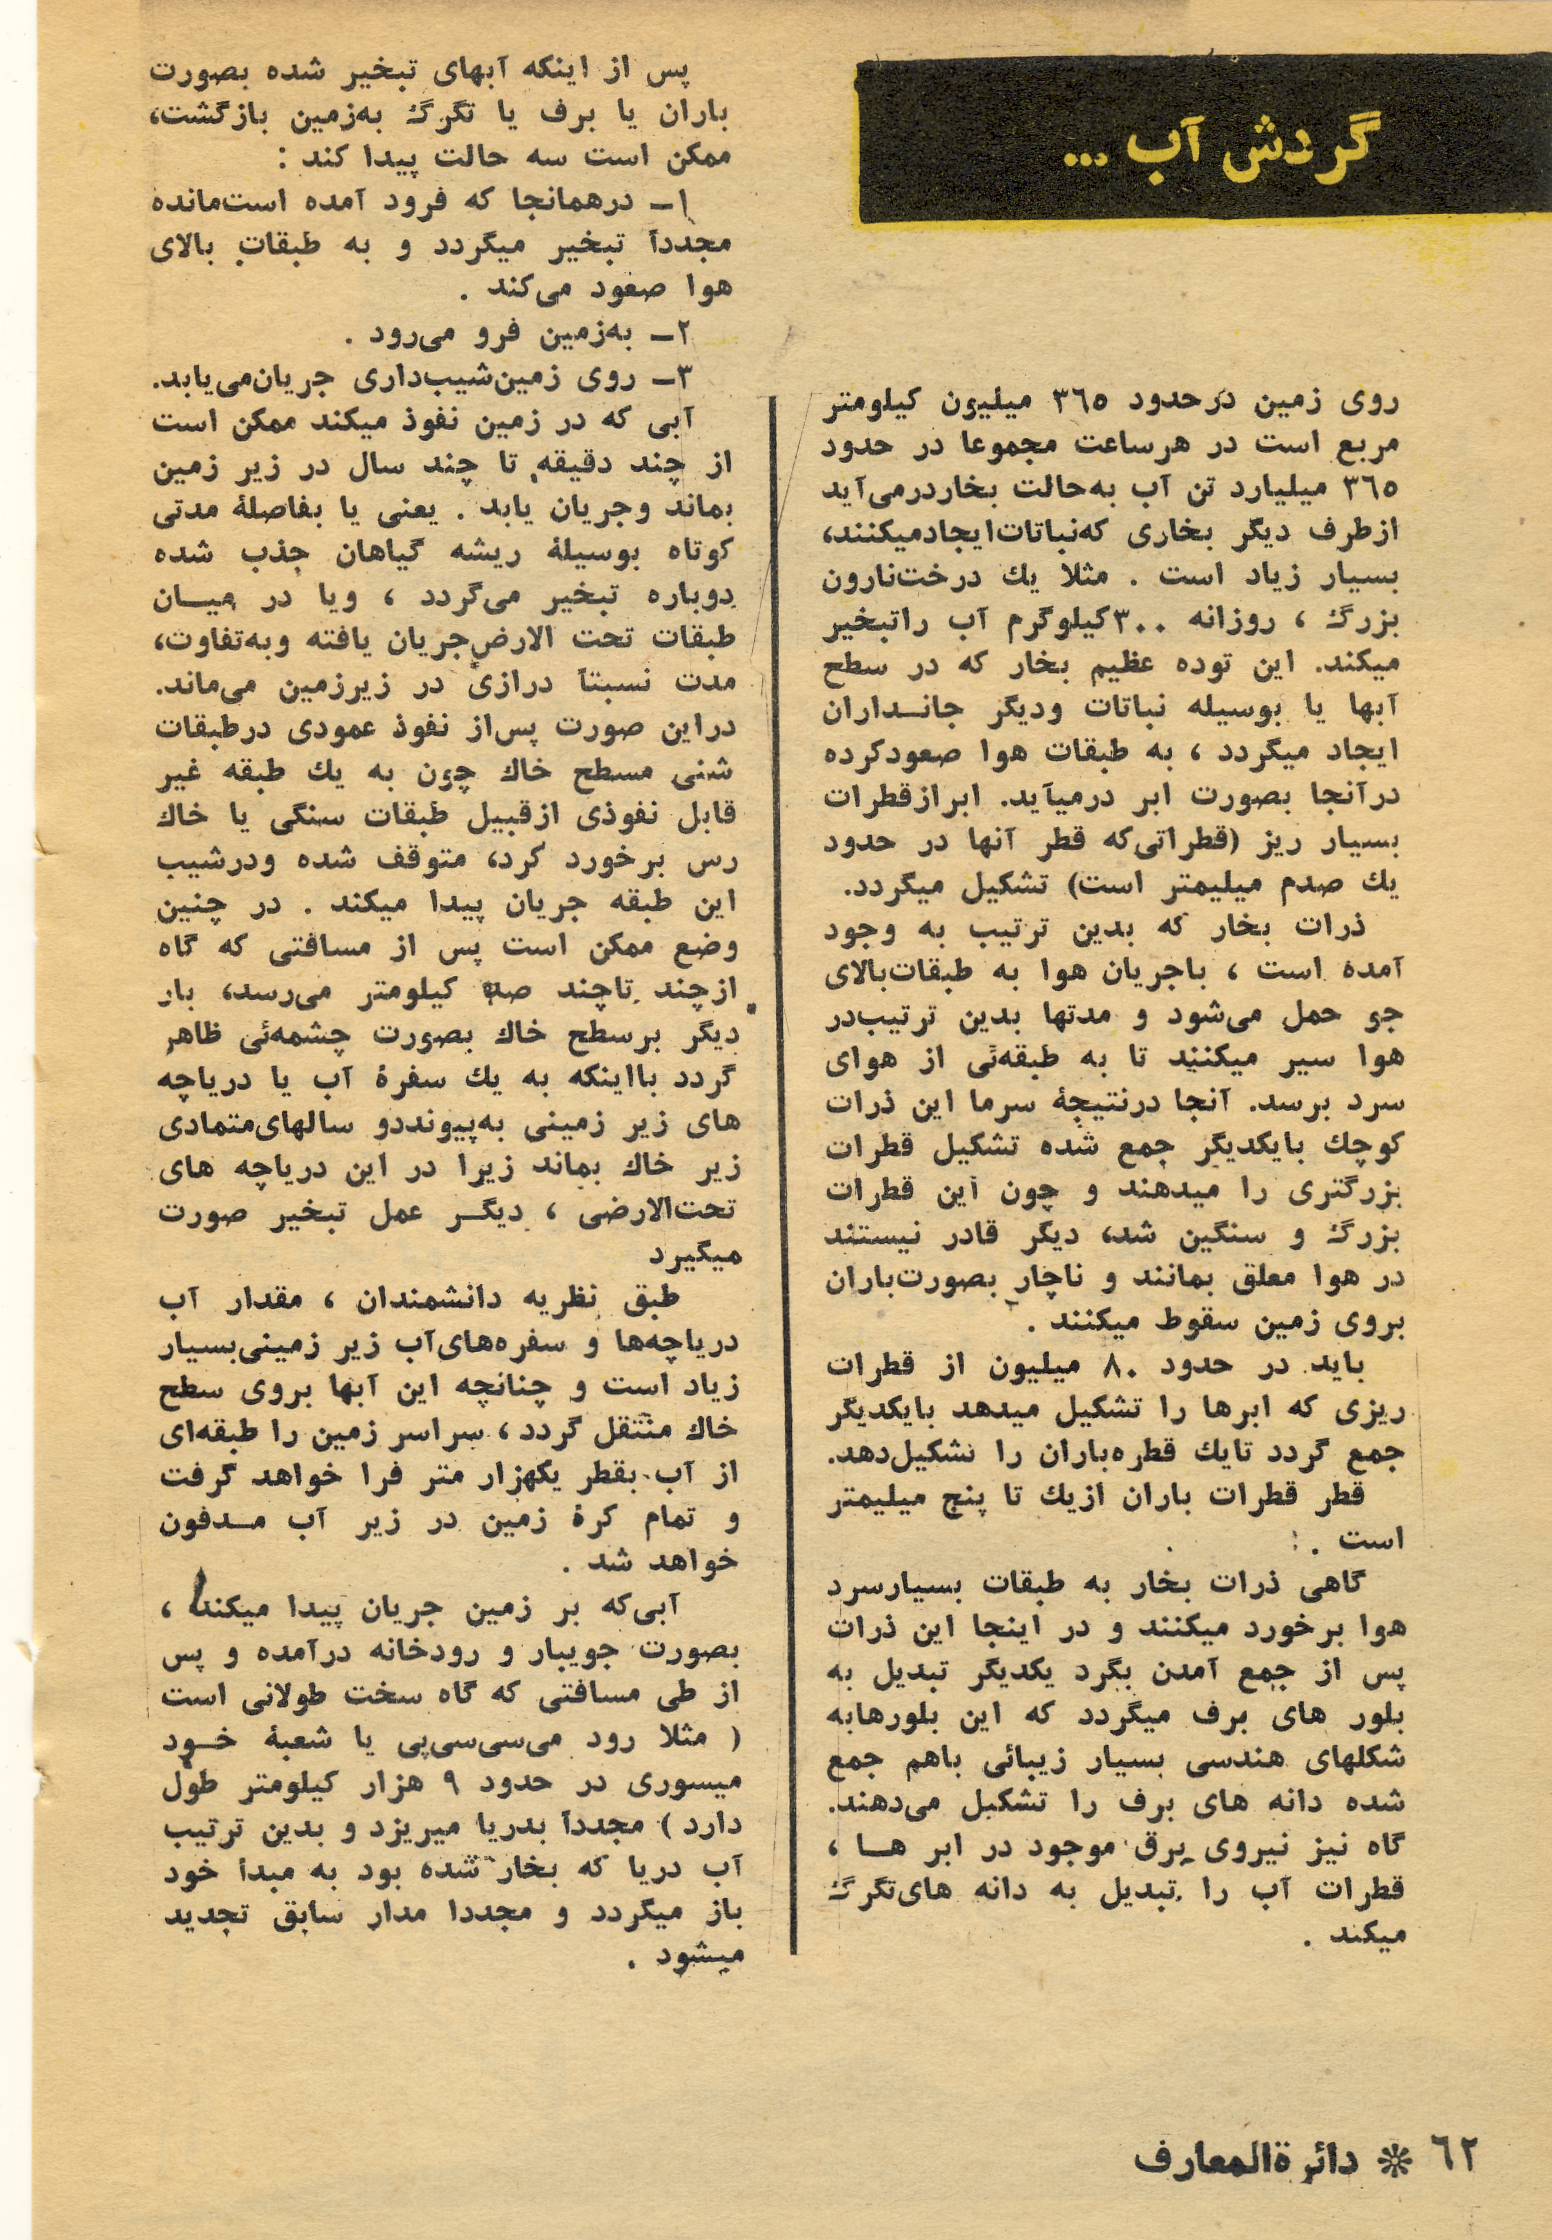 گردش آب ...
روی زمین درحدود ٣٦٥ میلیون کیلومتر
مربع است در هرساعت مجموعا در حدود
٣٦٥ میلیارد تن آب به‌حالت بخاردرمی‌آید
ازطرف دیگر بخاری که‌نباتات‌ایجادمیکنند،
بسیار زیاد است . مثلا یك درخت‌نارون
بزرگ ، روزانه ٣٠٠کیلوگرم آب راتبخیر
میکند. این توده عظیم بخار که در سطح
آبها یا بوسیله نباتات ودیگر جانـداران
ایجاد میگردد ، به طبقات هوا صعودکرده
درآنجا بصورت ابر درمیآید. ابرازقطرات
بسیار ریز (قطراتی‌که قطر آنها در حدود
یك صدم میلیمتر است) تشکیل میگردد.
ذرات بخار که بدین ترتیب به وجود
آمده است ، باجریان هوا به طبقات‌بالای
جو حمل می‌شود و مدتها بدین ترتیب‌در
هوا سیر میکنند تا به طبقه‌ئی از هوای
سرد برسد. آنجا درنتیجهٔ سرما این ذرات
کوچك بایکدیگر جمع شده تشکیل قطرات
بزرگتری را میدهند و چون این قطرات
بزرگ و سنگین شد، دیگر قادر نیستند
در هوا معلق بمانند و ناچار بصورت‌باران
بروی زمین سقوط میکنند .
باید در حدود ٨٠ میلیون از قطرات
ریزی که ابرها را تشکیل میدهد بایکدیگر
جمع گردد تایك قطره‌باران را تشکیل‌دهد.
قطر قطرات باران ازیك تا پنج میلیمتر
است .
گاهی ذرات بخار به طبقات بسیارسرد
هوا برخورد میکنند و در اینجا این ذرات
پس از جمع آمدن بگرد یکدیگر تبدیل به
بلور های برف میگردد که این بلورهابه
شکلهای هندسی بسیار زیبائی باهم جمع
شده دانه های برف را تشکیل می‌دهند.
گاه نیز نیروی برق موجود در ابر هـا ،
قطرات آب را تبدیل به دانه های‌تگرگ
میکند .
پس از اینکه آبهای تبخیر شده بصورت
باران یا برف یا تگرگ به‌زمین بازگشت،
ممکن است سه حالت پیدا کند :
١ـ درهمانجا که فرود آمده است‌مانده
مجدداً تبخیر میگردد و به طبقات بالای
هوا صعود می‌کند .
٢ـ به‌زمین فرو می‌رود .
٣ـ روی زمین‌شیب‌داری جریان‌می‌یابد.
آبی که در زمین نفوذ میکند ممکن است
از چند دقیقه تا چند سال در زیر زمین
بماند وجریان یابد . یعنی یا بفاصلهٔ مدتی
کوتاه بوسیلهٔ ریشه گیاهان جذب شده
دوباره تبخیر می‌گردد ، ویا در میـان
طبقات تحت الارض‌جریان یافته وبه‌تفاوت،
مدت نسبتاً درازی در زیرزمین می‌ماند.
دراین صورت پس‌از نفوذ عمودی درطبقات
شنی مسطح خاك چون به یك طبقه غیر
قابل نفوذی ازقبیل طبقات سنگی یا خاك
رس برخورد کرد، متوقف شده ودرشیب
این طبقه جریان پیدا میکند . در چنین
وضع ممکن است پس از مسافتی که گاه
ازچند تاچند صد کیلومتر می‌رسد، بار
دیگر برسطح خاك بصورت چشمه‌ئی ظاهر
گردد بااینکه به یك سفرهٔ آب یا دریاچه
های زیر زمینی به‌پیونددو سالهای‌متمادی
زیر خاك بماند زیرا در این دریاچه های
تحت‌الارضی ، دیگـر عمل تبخیر صورت
میگیرد
طبق نظریه دانشمندان ، مقدار آب
دریاچه‌ها و سفره‌های‌آب زیر زمینی‌بسیار
زیاد است و چنانچه این آبها بروی سطح
خاك منتقل گردد ، سراسر زمین را طبقه‌ای
از آب بقطر یکهزار متر فرا خواهد گرفت
و تمام کرهٔ زمین در زیر آب مـدفون
خواهد شد .
آبی‌که بر زمین جریان پیدا میکند ،
بصورت جویبار و رودخانه درآمده و پس
از طی مسافتی که گاه سخت طولانی است
( مثلا رود می‌سی‌سی‌پی یا شعبهٔ خـود
میسوری در حدود ٩ هزار کیلومتر طول
دارد ) مجدداً بدریا میریزد و بدین ترتیب
آب دریا که بخار شده بود به مبدأ خود
باز میگردد و مجددا مدار سابق تجدید
میشود .
٦٢ ❊ دائرةالمعارف